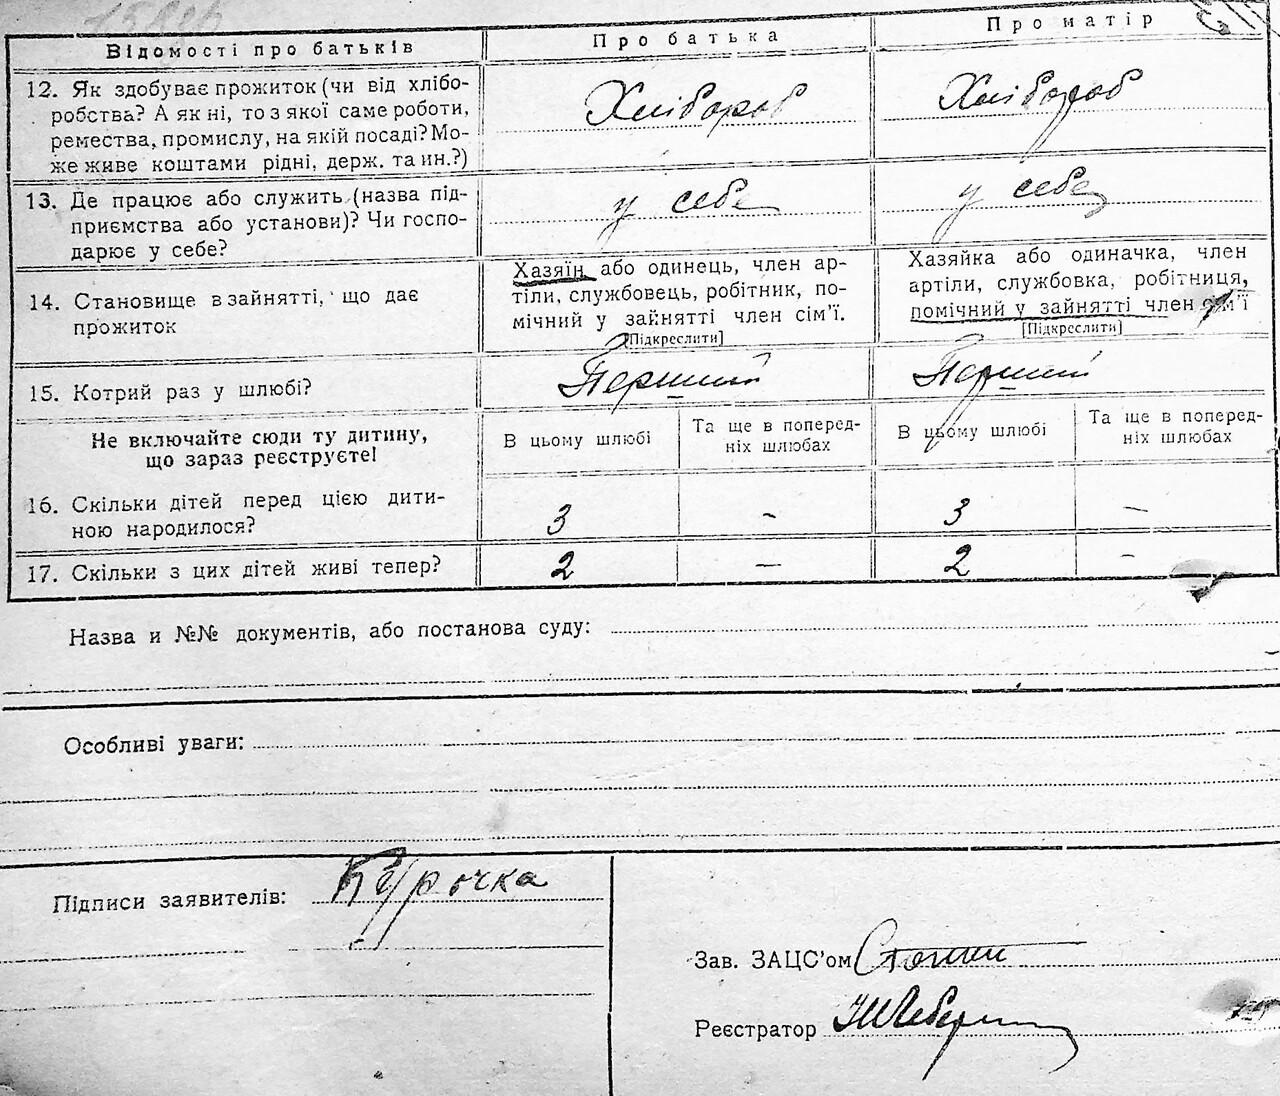 Відомості про батьків Про батька Про матір
12. Як здобуває прожиток (чи від хлібо-
робства? А як ні, то з якої саме роботи,
ремества, промислу, на якій посаді? Мо-
же живе коштами рідні, держ. та ин.?)
Хлібороб Хлібороб
13. Де працює або служить (назва під-
приємства або установи)? Чи госпо-
дарює у себе?
у себе у себе
14. Становище в зайнятті, що дає
прожиток
Хазяїн або одинець, член ар-
тіли, службовець, робітник, по-
мічний у зайнятті член сім'ї.
[Підкреслити]
Хазяйка або одиначка, член
артіли, службовка, робітниця,
помічний у зайнятті член сім'ї
[Підкреслити]
15. Котрий раз у шлюбі? Перший Перший
Не включайте сюди ту дитину,
що зараз реєструєте!
В цьому шлюбі
Та ще в поперед-
ніх шлюбах
В цьому шлюбі
Та ще в поперед-
ніх шлюбах
16. Скільки дітей перед цією дити-
ною народилося?
3 - 3 -
17. Скільки з цих дітей живі тепер? 2 - 2 -
Назва и №№ документів, або постанова суду:
Особливі уваги:
Підписи заявителів: Курочка
Зав. ЗАЦС'ом
Реєстратор